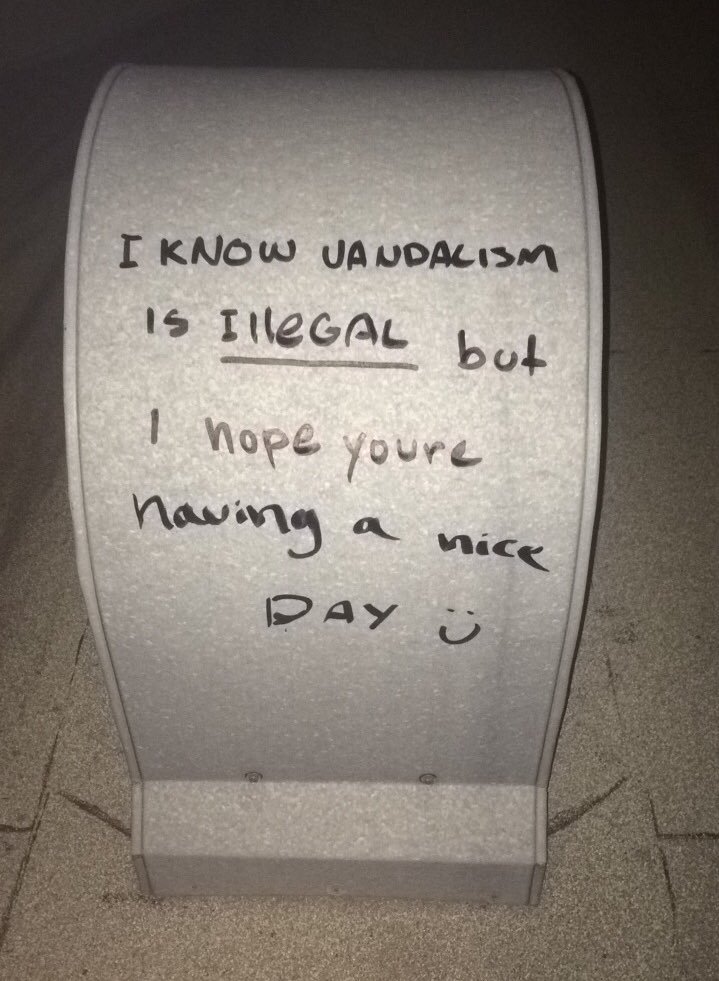 I KNOW VANDALISM
IS IlleGAL but
I hope youre
having a nice
DAY :)